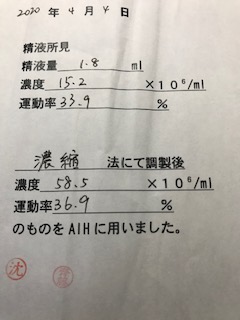 2020 年 4 月 4 日
精液所見
精液量 1.8 ml
濃度 15.2 ×10⁶/ml
運動率 33.9 %
濃縮 法にて調製後
濃度 58.5 ×10⁶/ml
運動率 36.9 %
のものをAIHに用いました。
沈